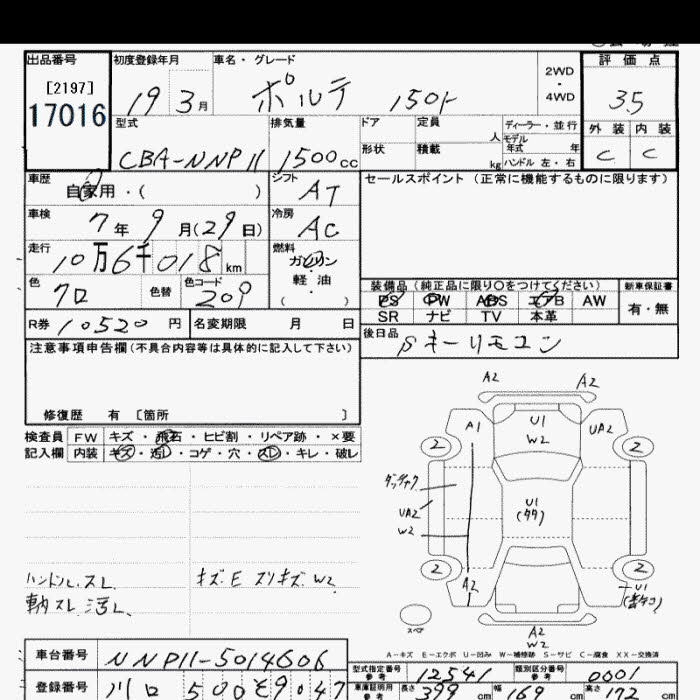 出品番号 初度登録年月 車名・グレード 評価点
[2197]
17016
19 3月 ポルテ 150r 2WD ・ 4WD 3.5
型式 排気量 ドア 定員 人 ディーラー・並行 外装 内装
モデル年式 年
CBA-NNP11 1500cc 形状 積載 kg ハンドル 左・右 C C
車歴 自家用・( ) シフト AT セールスポイント (正常に機能するものに限ります)
車検 7年 9月(29日) 冷房 AC
走行 10万6千018km 燃料 ガソリン
軽油
( )
色 クロ 色替 色コード 209 装備品(純正品に限り○をつけてください) 新車保証書
PS PW ABS エアB AW 有・無
SR ナビ TV 本革
R券 10520円 名変期限 月 日 後日品 Sキーリモコン
注意事項申告欄(不具合内容等は具体的に記入して下さい)
修復歴 有 [箇所 ]
検査員 FW キズ・飛石・ヒビ割・リペア跡・×要
記入欄 内装 キズ・汚レ・コゲ・穴・スレ・キレ・破レ
A2 A2
A1 U1 UA2
W2
2 2
U1
UA2
W2
2 2
A2 U1
ハンドルスレ キズE スリキズW2
スペア A2
W2
A-キズ E-エクボ U-凹み W-補修跡 S-サビ C-腐食 XX-交換済
車台番号 NNP11-5014606 型式指定番号 参考 12541 類別区分番号 参考 0001
登録番号 川口 500 そ 9047 車庫証明用 参考 長さ 399cm 幅 169cm 高さ 172cm